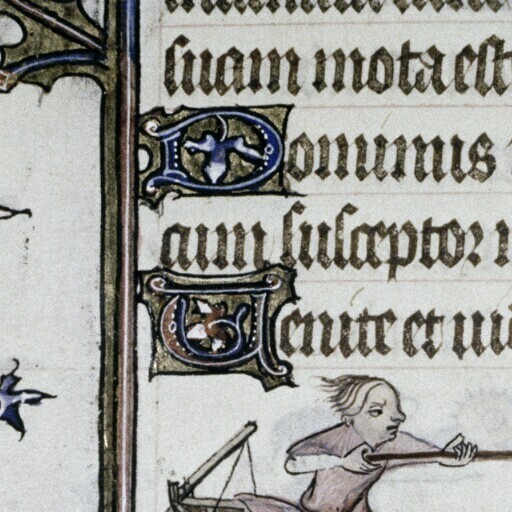 suam mota est
Dominus
cum susceptor n
Uenite et uid